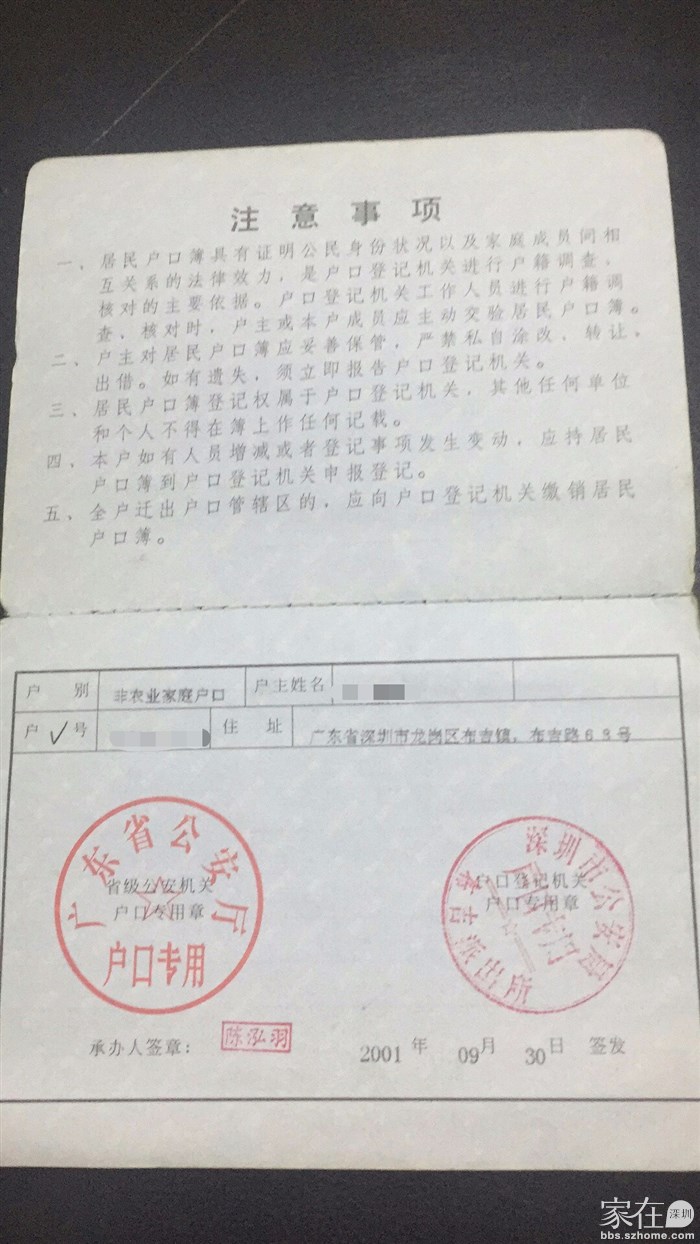 注意事项
一、居民户口簿具有证明公民身份状况以及家庭成员间相
互关系的法律效力，是户口登记机关进行户籍调查、
核对的主要依据。户口登记机关工作人员进行户籍调
查、核对时，户主或本户成员应主动交验居民户口簿。
二、户主对居民户口簿应妥善保管，严禁私自涂改、转让、
出借。如有遗失，须立即报告户口登记机关。
三、居民户口簿登记权属于户口登记机关，其他任何单位
和个人不得在簿上作任何记载。
四、本户如有人员增减或者登记事项发生变动，应持居民
户口簿到户口登记机关申报登记。
五、全户迁出户口管辖区的，应向户口登记机关缴销居民
户口簿。
户 别 非农业家庭户口 户主姓名
户 号 住 址 广东省深圳市龙岗区布吉镇，布吉路68号
广东省公安厅
省级公安机关
户口专用章
户口专用
深圳市公安局
户口登记机关
户口专用章
派出所
承办人签章： 陈泓羽 2001年 09月 30日 签发
家在深圳
bbs.szhome.com